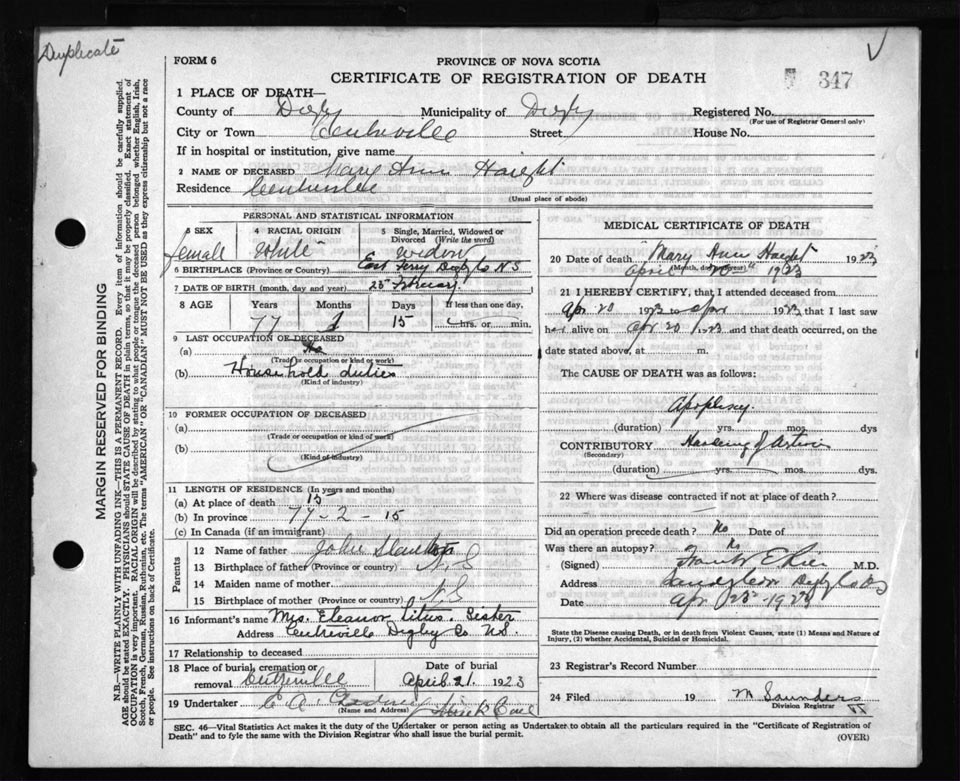 Duplicate
FORM 6
PROVINCE OF NOVA SCOTIA
CERTIFICATE OF REGISTRATION OF DEATH
347
1 PLACE OF DEATH—
County of Digby Municipality of Digby Registered No.
(For use of Registrar General only)
City or Town Centreville Street House No.
If in hospital or institution, give name
2 NAME OF DECEASED Mary Ann Haight
Residence Centreville
(Usual place of abode)
PERSONAL AND STATISTICAL INFORMATION
3 SEX female
4 RACIAL ORIGIN White
5 Single, Married, Widowed or Divorced (Write the word) Widow
6 BIRTHPLACE (Province or Country) East Ferry Digby Co N.S
7 DATE OF BIRTH (month, day and year) 25 February
8 AGE Years Months Days If less than one day,
77 1 15 hrs. or min.
9 LAST OCCUPATION OF DECEASED
(a)
(Trade or occupation or kind of work)
(b) Household duties
(Kind of industry)
10 FORMER OCCUPATION OF DECEASED
(a)
(Trade or occupation or kind of work)
(b)
(Kind of industry)
11 LENGTH OF RESIDENCE (In years and months)
(a) At place of death 15
(b) In province 77-2-15
(c) In Canada (if an immigrant)
Parents
12 Name of father John
13 Birthplace of father (Province or country) N.S
14 Maiden name of mother
15 Birthplace of mother (Province or country) N.S
16 Informant's name Mrs. Eleanor Titus. Sister
Address Centreville Digby Co N.S.
17 Relationship to deceased
18 Place of burial, cremation or removal Centreville
Date of burial April 21 1923
19 Undertaker
(Name and Address)
MEDICAL CERTIFICATE OF DEATH
20 Date of death Mary Ann Haight 1923
(Month, day and year)
April 20 1923
21 I HEREBY CERTIFY, that I attended deceased from
Apr 20 1923 to Apr 1923, that I last saw
her alive on Apr 20 1923 and that death occurred, on the
date stated above, at m.
The CAUSE OF DEATH was as follows:
Apoplexy.
(duration) yrs. mos. dys
CONTRIBUTORY Hardening of Arteries
(Secondary)
(duration) yrs. mos. dys.
22 Where was disease contracted if not at place of death?
Did an operation precede death? No Date of
Was there an autopsy? No
(Signed) Frank E Rice M.D.
Address Sandy Cove Digby Co NS
Date Apr 23 - 1923
State the Disease causing Death, or in death from Violent Causes, state (1) Means and Nature of
Injury, (2) whether Accidental, Suicidal or Homicidal.
23 Registrar's Record Number
24 Filed 19 M Saunders
Division Registrar
SEC. 46—Vital Statistics Act makes it the duty of the Undertaker or person acting as Undertaker to obtain all the particulars required in the "Certificate of Registration of
Death" and to fyle the same with the Division Registrar who shall issue the burial permit.
(OVER)
MARGIN RESERVED FOR BINDING
N.B.—WRITE PLAINLY WITH UNFADING INK—THIS IS A PERMANENT RECORD. Every item of information should be carefully supplied.
AGE should be stated EXACTLY. PHYSICIANS should STATE CAUSE OF DEATH in plain terms, so that it may be properly classified. Exact statement of
OCCUPATION is very important. RACIAL ORIGIN will be described by stating to what people or tongue the deceased person belonged whether English, Irish,
Scotch, French, German, Russian, Ruthenian, etc. The terms "AMERICAN" OR "CANADIAN" MUST NOT BE USED as they express citizenship but not a race
or people. See instructions on back of Certificate.